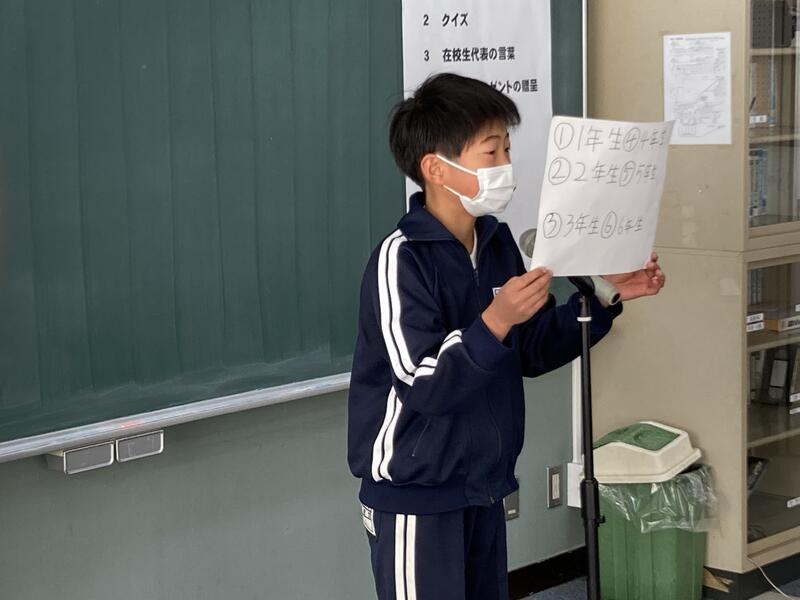 2 クイズ
3 在校生代表の言葉
ゼントの贈呈
①1年生④4年生
②2年生⑤5年生
③3年生⑥6年生